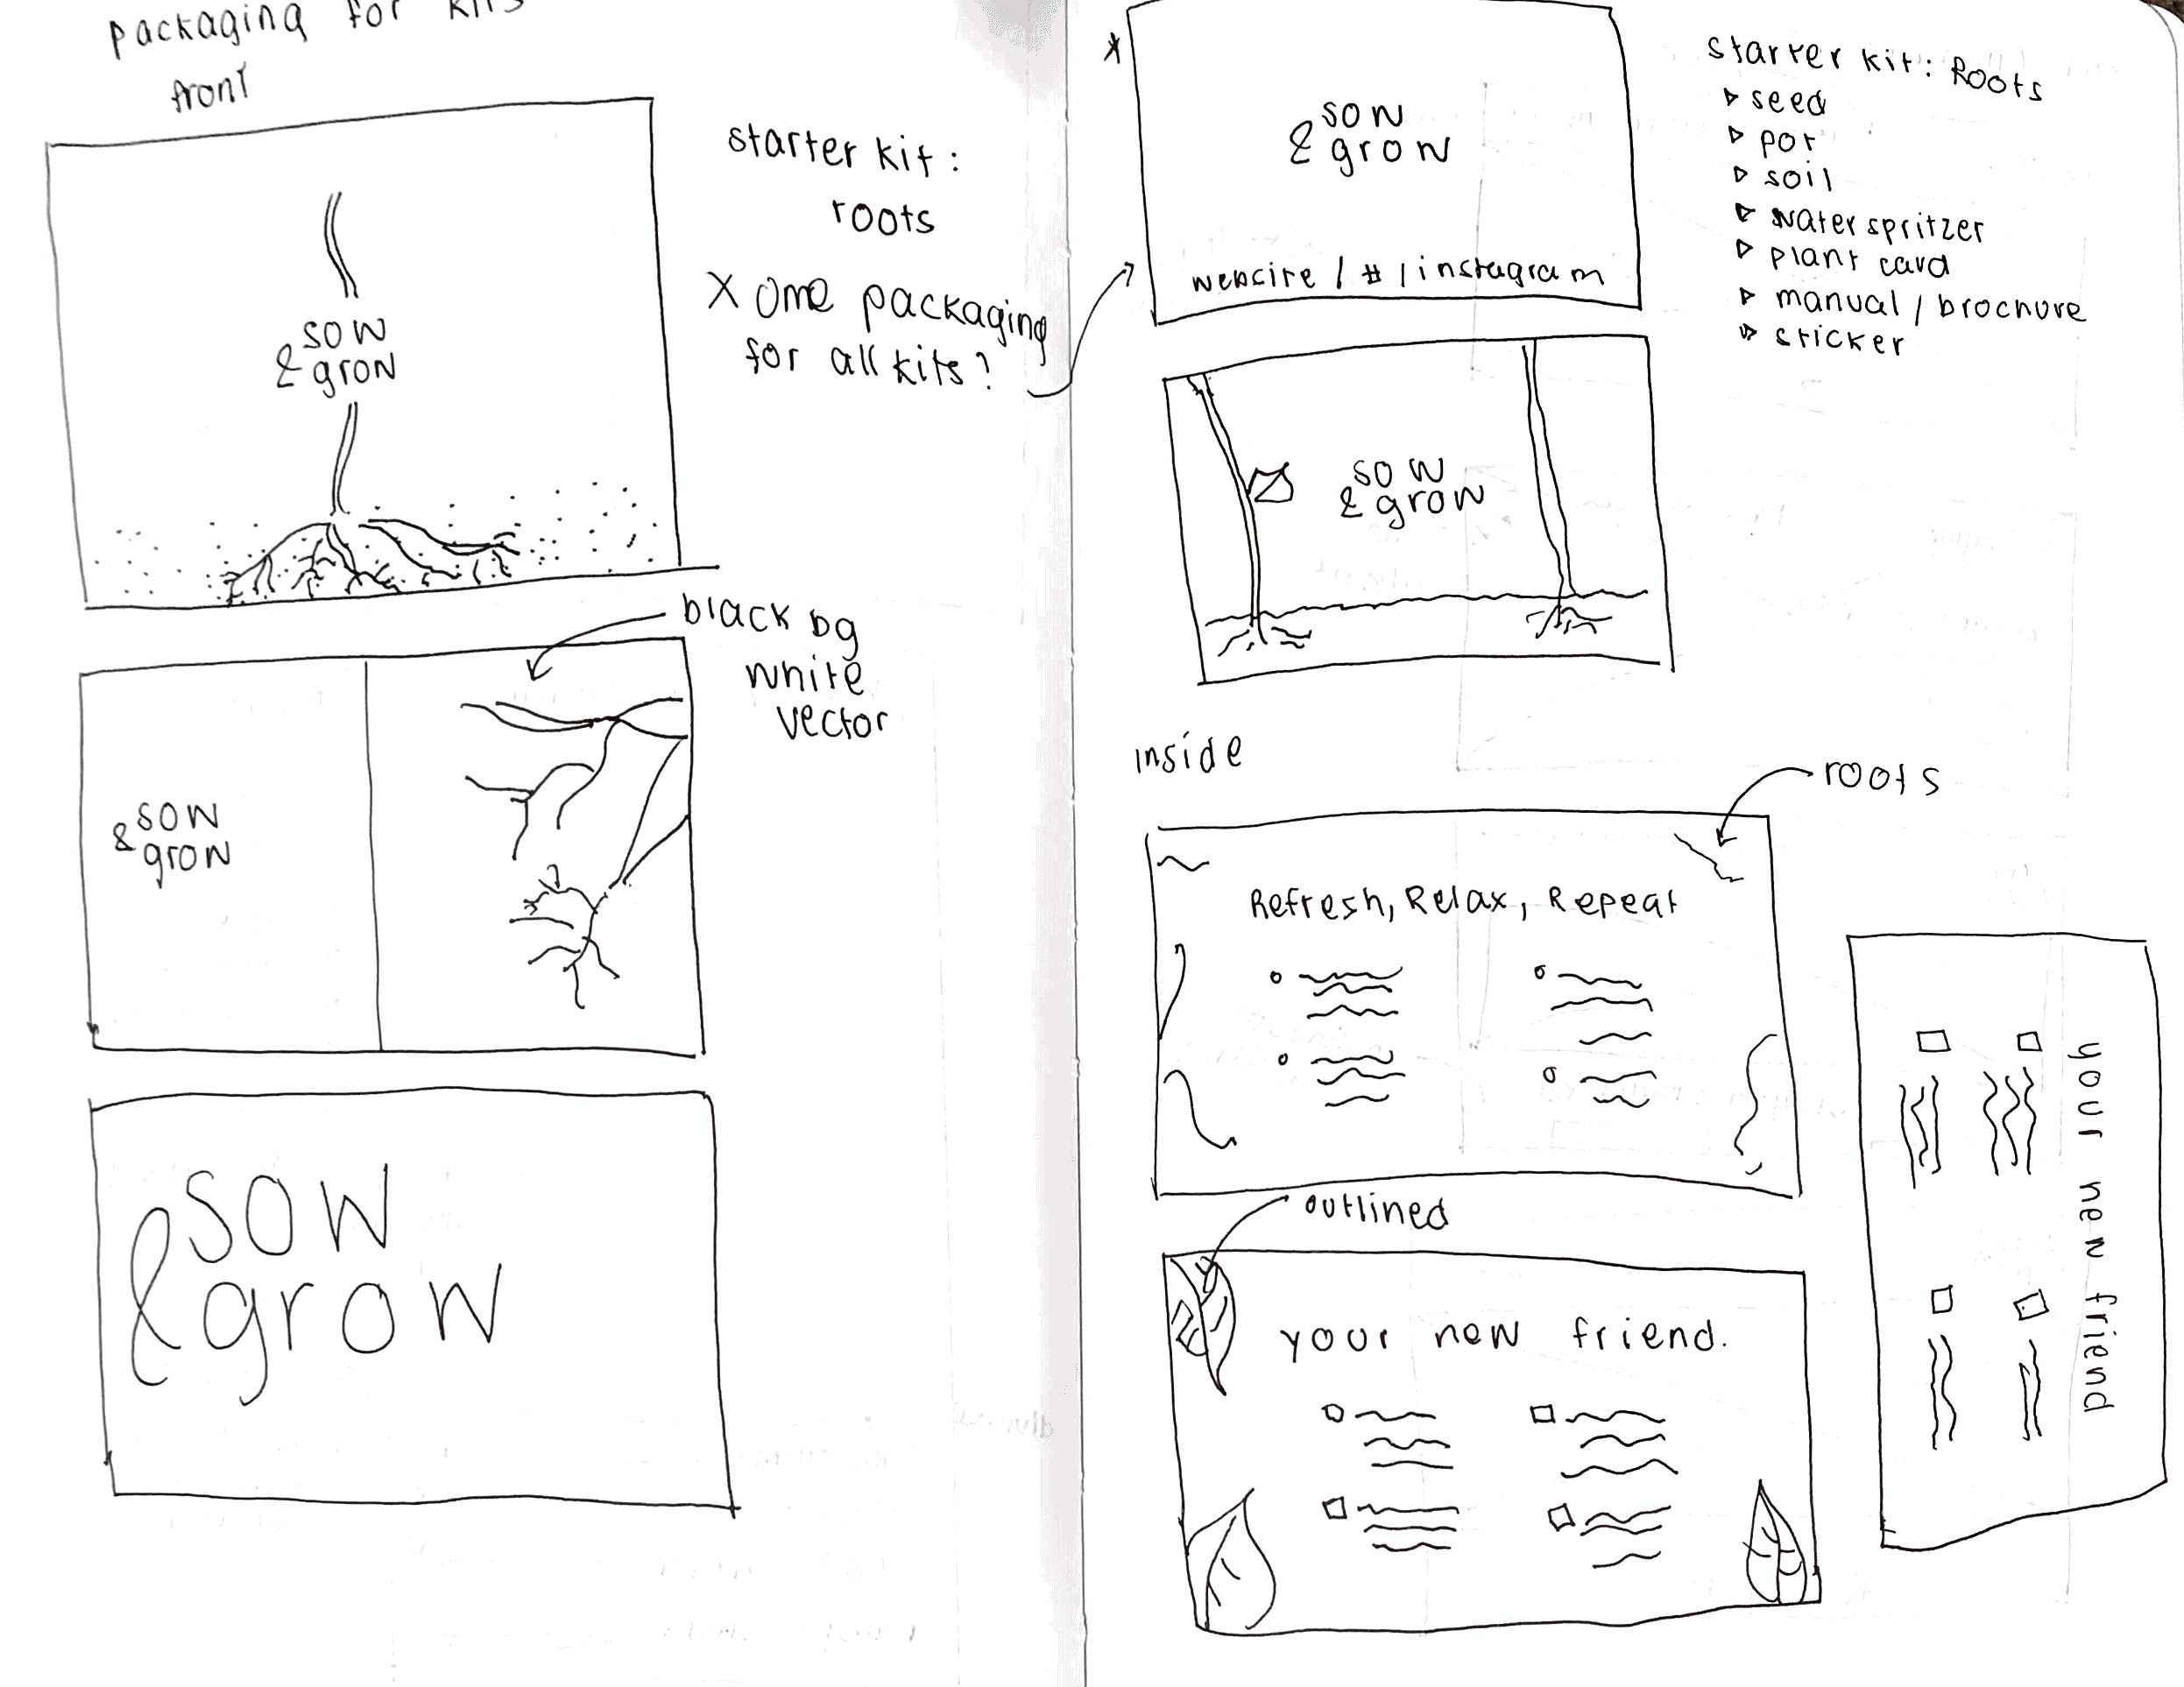 packaging for kits
front
sow
& grow
starter kit:
roots
x One packaging
for all kits?
black bg
white
vector
sow
& grow
sow
& grow
*
sow
& grow
website / # / instagram
starter kit: Roots
▷ seed
▷ pot
▷ soil
▷ water spritzer
▷ plant card
▷ manual / brochure
▷ sticker
sow
& grow
inside
roots
Refresh, Relax, Repeat
your new friend
outlined
your new friend.